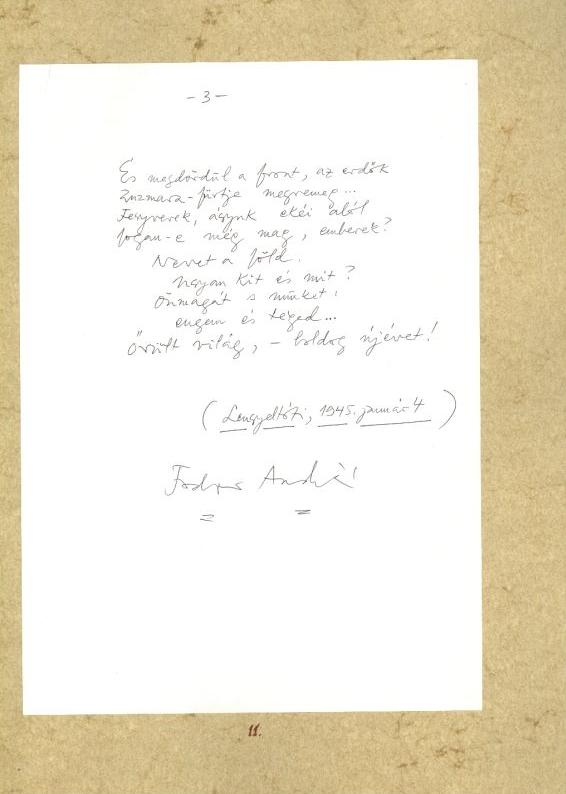 - 3 -
És megdördül a front, az erdők
Zuzmara-fürtje megremeg...
Fegyverek, ágyuk ekéi alól
fogan-e még mag, emberek?
Nevet a föld.
Ugyan kit és mit?
Önmagát s minket:
engem és téged...
Őrült világ, - boldog újévet!
(Lengyeltóti, 1945. január 4)
Fodor András
11.